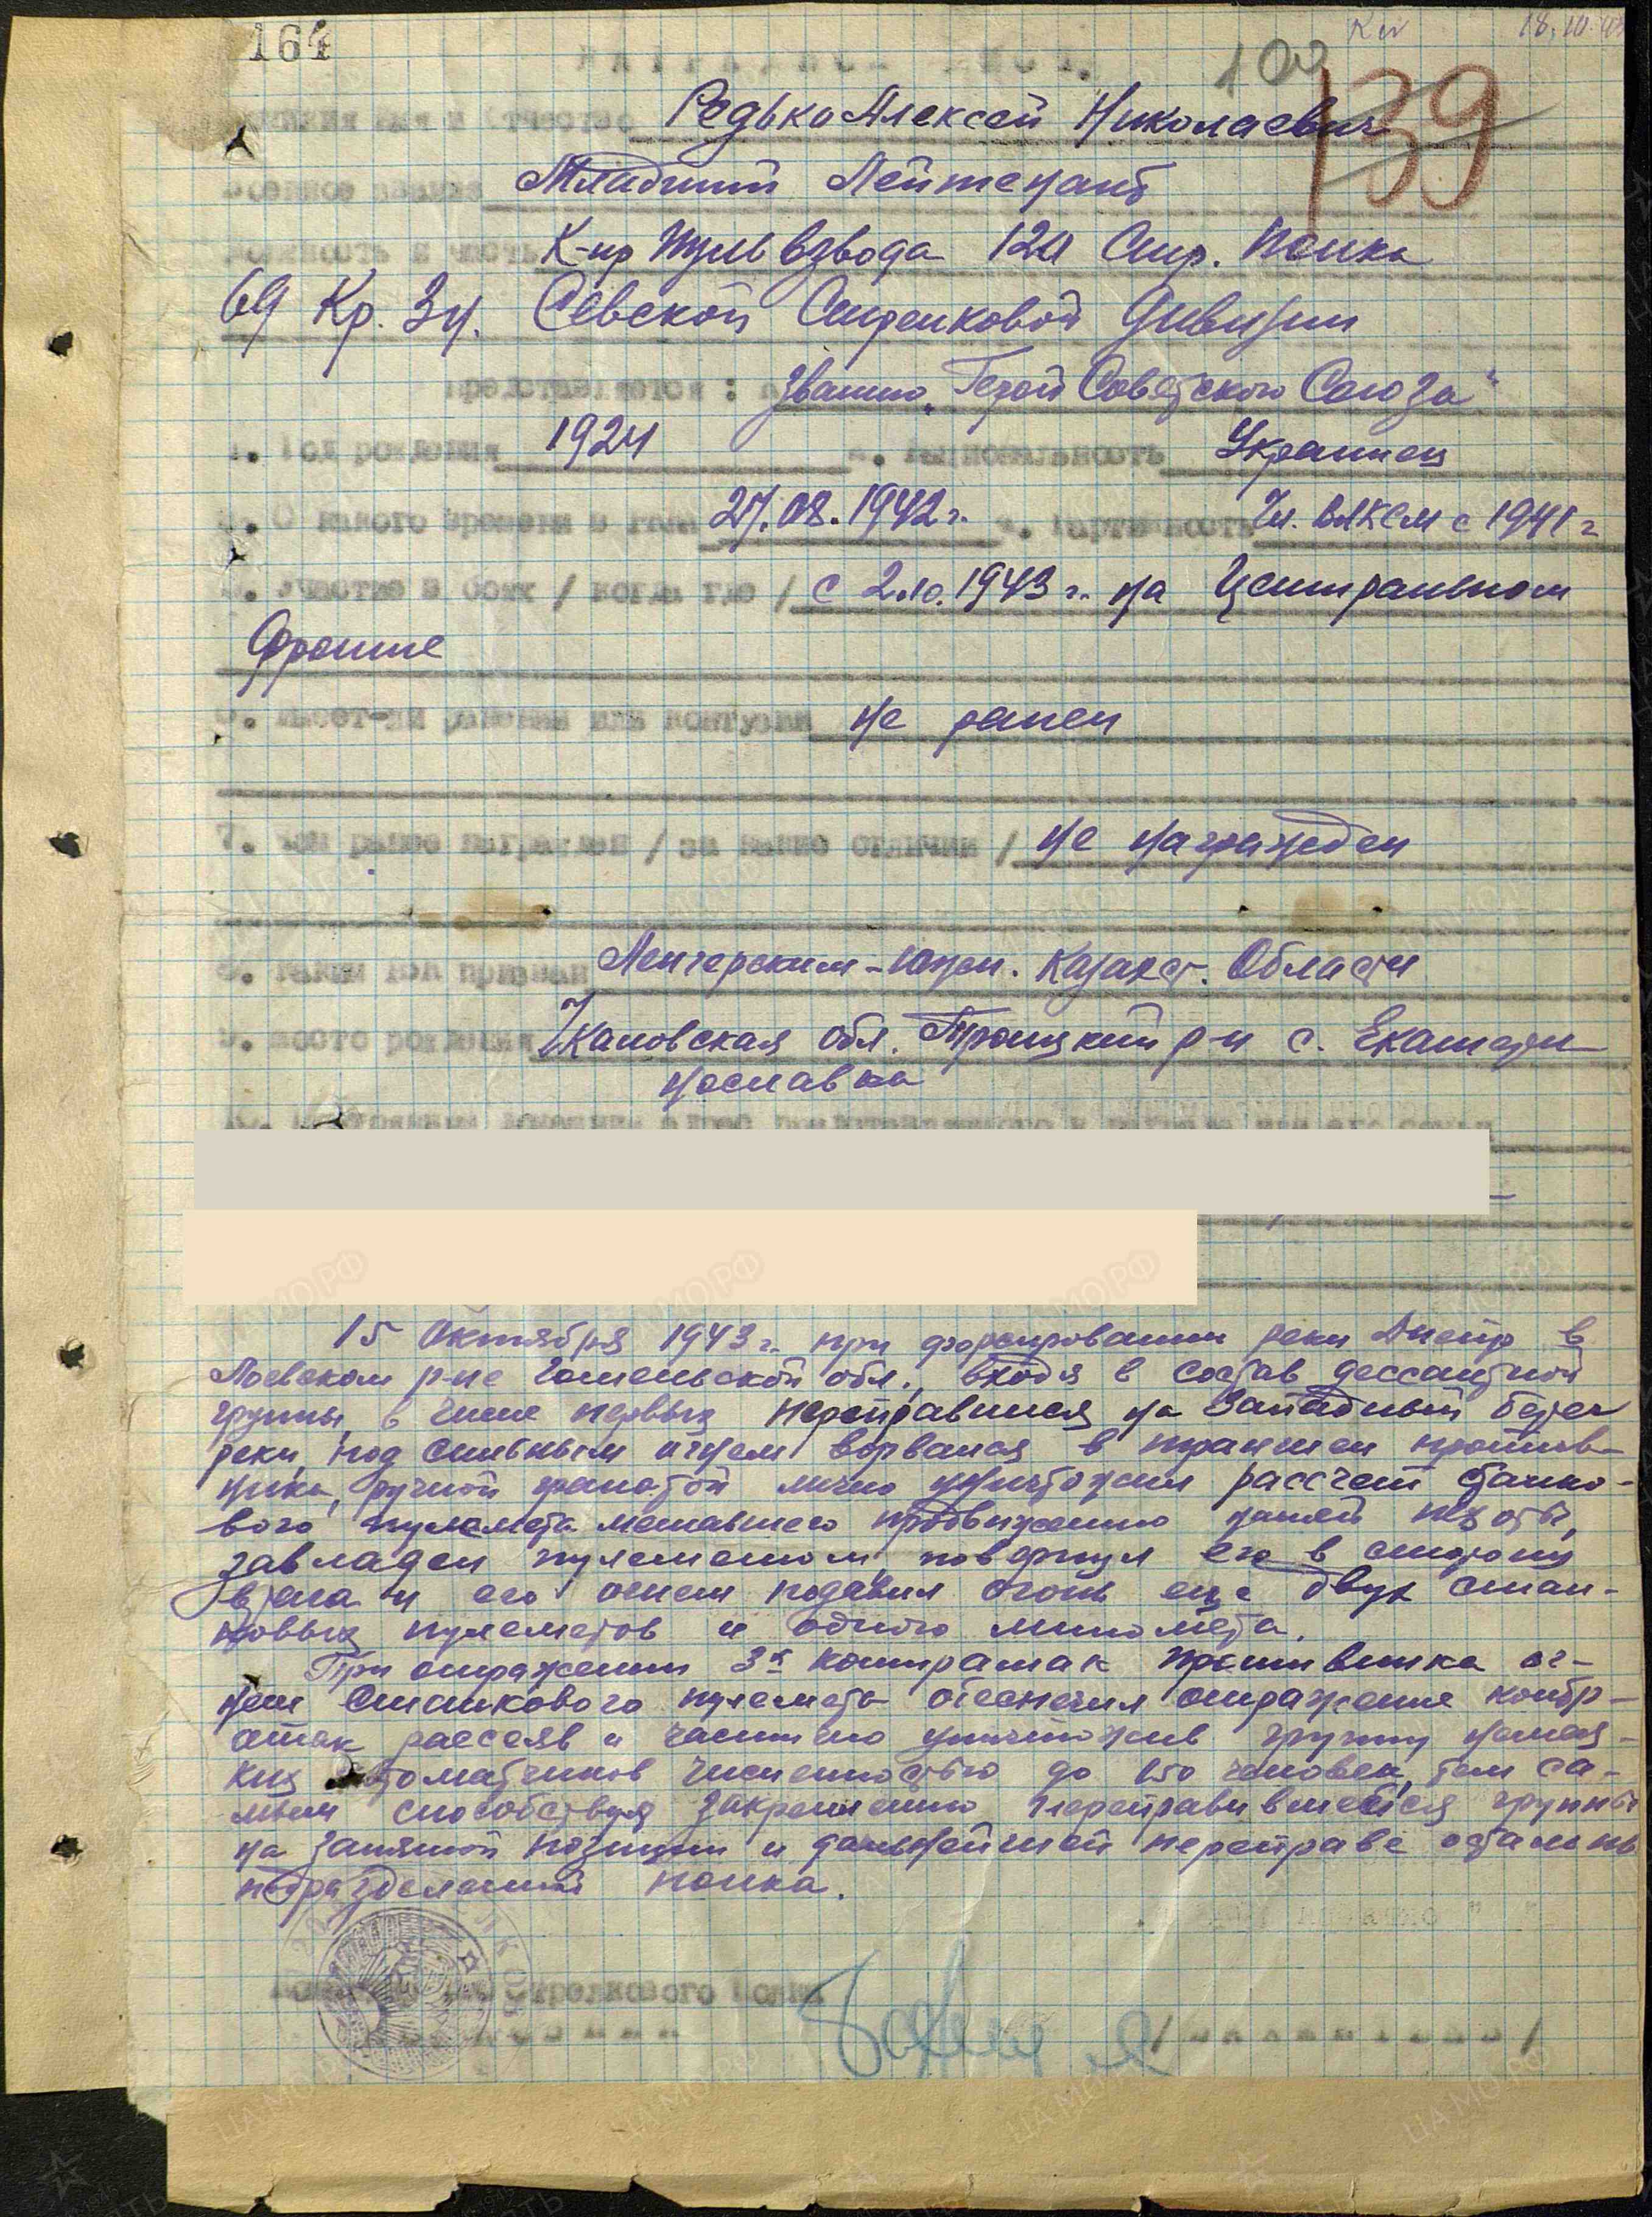 164
100
139
18.10.43
Фамилия имя и Отчество Редько Алексей Николаевич
Военное звание Младший Лейтенант
Должность и часть К-ир Пул взвода 120 Стр. Полка
69 Кр. Зн. Севской Стрелковой Дивизии
представляется: к званию „Герой Советского Союза"
1. Год рождения 1924 2. Национальность Украинец
3. С какого времени в 27.08.1942 г. 4. Партийность Чл. ВЛКСМ с 1941 г
5. Участие в боях / когда где / с 2.10.1943 г. на Центральном
Фронте
6. Имеет-ли ранения или контузии не ранен
7. Чем ранее награжден / за какие отличия / не награжден
8. Каким РВК призван Ленгерским-Южн. Казахст. Области
9. Место рождения Чкаловская обл. Троицкий р-н с. Екатери-
нославка
15 Октября 1943 г. при форсировании реки Днепр в
Лоевском р-не Гомельской обл., входя в состав дессантной
группы, в числе первых переправился на Западный берег
реки, под сильным огнем ворвался в траншеи против-
ника, ручной гранатой лично уничтожил рассчет станко-
вого пулемета мешавшего продвижению нашей пехоты,
завладел пулеметом, повернул его в сторону
врага и его огнем подавил огонь еще двух стан-
ковых пулеметов и одного миномета.
При отражении 3х контратак противника ог-
нем станкового пулемета обеспечил отражение контр-
атак рассеяв и частично уничтожив группу немец-
ких автоматчиков численностью до 150 человек, тем са-
мым способствуя закреплению переправившейся группы
на занятой позиции и дальнейшей переправе остальных
подразделений полка.
Стрелкового полка